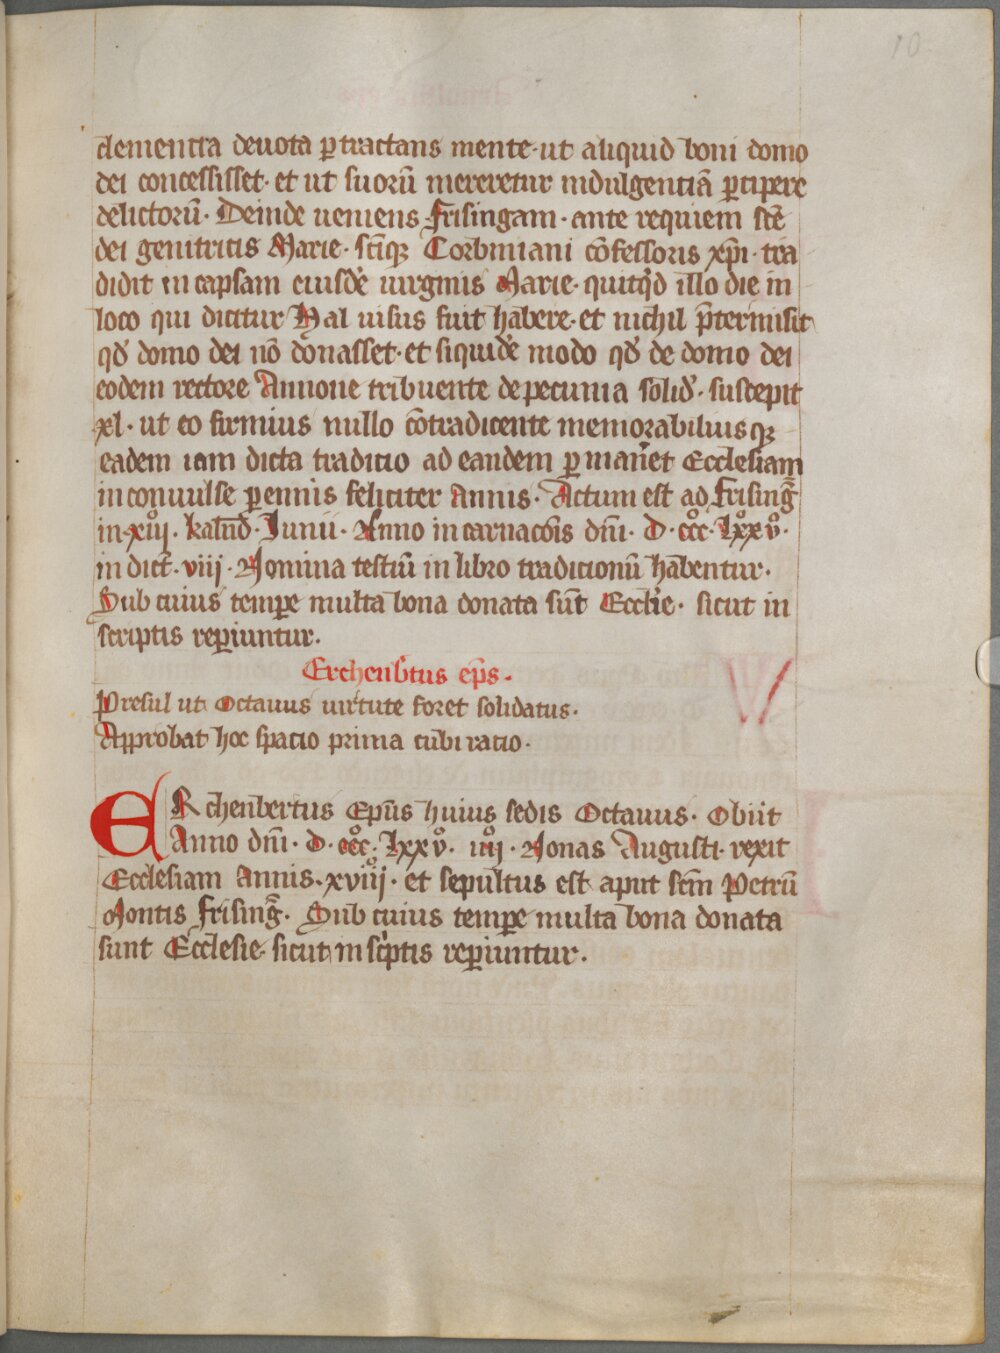 10
clementia deuota ꝑtractans mente· ut aliquid boni domo
dei concessisset· et ut suorū mereretur indulgentiā ꝑcipere
delictorū· Deinde ueniens Frisingam· ante requiem scē
dei genitricis Marie· scīqꝫ Corbiniani cōfessoris xp̄i· tra
didit in capsam eiusdē uirginis Marie· quitqd illo die in
loco qui dicitur Hal uisus fuit habere· et nichil p̄termisit
qd domo dei nō donasset· et siquidē modo qd de domo dei
eodem rectore Annone tribuente de pecunia solid· suscepit
xl· ut eo firmius nullo cōtradicente memorabiliusqꝫ
eadem iam dicta tradicio ad eandem ꝑmaneet Ecclesiam
inconuulse ꝑennis feliciter Annis· Actum est ad Frisinḡ
in·xiiij· kalend· Junii· Anno incarnacōis dn̄i· D·ccc·lxxv·
indict̄· viii· Nomina testiū in libro tradicionū habentur·
Sub cuius temꝑe multa bona donata sūt Ecclīe· sicut in
scriptis reꝑiuntur·
Erchenb̄tus ep̄s·
Presul ut Octauus uirtute foret solidatus·
Approbat hoc spacio prima cubi racio·
ERchenbertus Ep̄us huius sedis Octauus· Obiit
Anno dn̄i· D·ccc·lxxv· iiij· Nonas Augusti· rexit
Ecclesiam Annis·xviiij· et sepultus est aput sc̄m Petrū
Montis Frisinḡ· Sub cuius temꝑe multa bona donata
sunt Ecclesie· sicut in sc̄ptis reꝑiuntur·